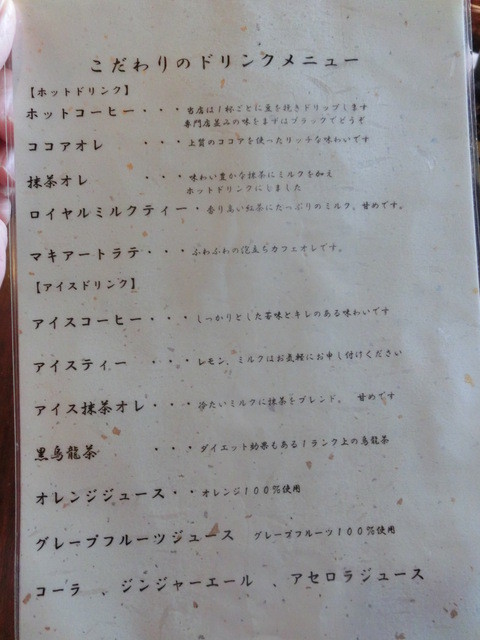 こだわりのドリンクメニュー
【ホットドリンク】
ホットコーヒー・・・当店は1杯ごとに豆を挽きドリップします
専門店並みの味をまずはブラックでどうぞ
ココアオレ ・・・上質のココアを使ったリッチな味わいです
抹茶オレ ・・・味わい豊かな抹茶にミルクを加え
ホットドリンクにしました
ロイヤルミルクティー・香り高い紅茶にたっぷりのミルク、甘めです。
マキアートラテ・・・ふわふわの泡立ちカフェオレです。
【アイスドリンク】
アイスコーヒー・・・しっかりとした苦味とキレのある味わいです
アイスティー ・・・レモン、ミルクはお気軽にお申し付けください
アイス抹茶オレ・・・冷たいミルクに抹茶をブレンド。 甘めです
黒烏龍茶 ・・・ダイエット効果もある1ランク上の烏龍茶
オレンジジュース・・オレンジ100%使用
グレープフルーツジュース グレープフルーツ100%使用
コーラ 、ジンジャーエール 、アセロラジュース